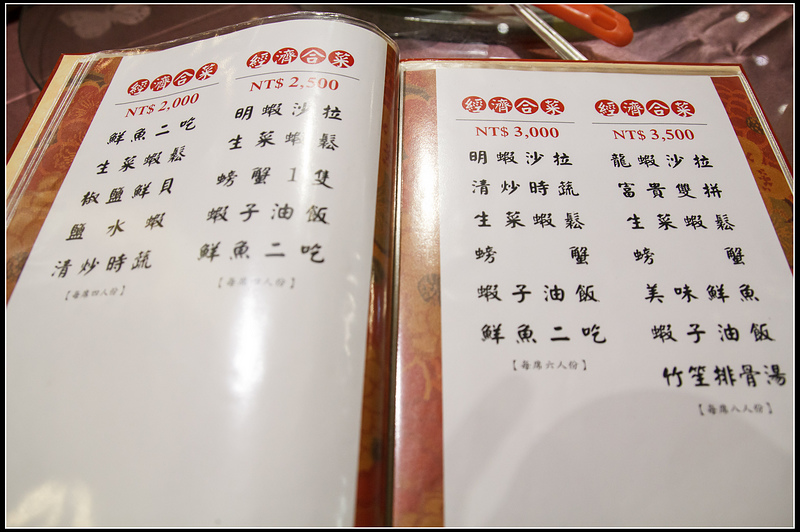 經濟合菜
NT$ 2,000
鮮魚二吃
生菜蝦鬆
椒鹽鮮貝
鹽水蝦
清炒時蔬
【每席四人份】
經濟合菜
NT$ 2,500
明蝦沙拉
生菜蝦鬆
螃蟹1隻
蝦子油飯
鮮魚二吃
【每席四人份】
經濟合菜
NT$ 3,000
明蝦沙拉
清炒時蔬
生菜蝦鬆
螃蟹
蝦子油飯
鮮魚二吃
【每席六人份】
經濟合菜
NT$ 3,500
龍蝦沙拉
富貴雙拼
生菜蝦鬆
螃蟹
美味鮮魚
蝦子油飯
竹笙排骨湯
【每席八人份】